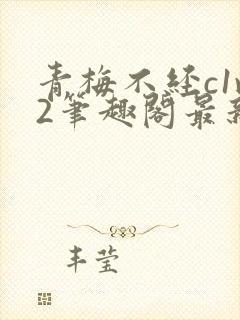 青梅不经c1v
2筆趣阁最新
丰莹